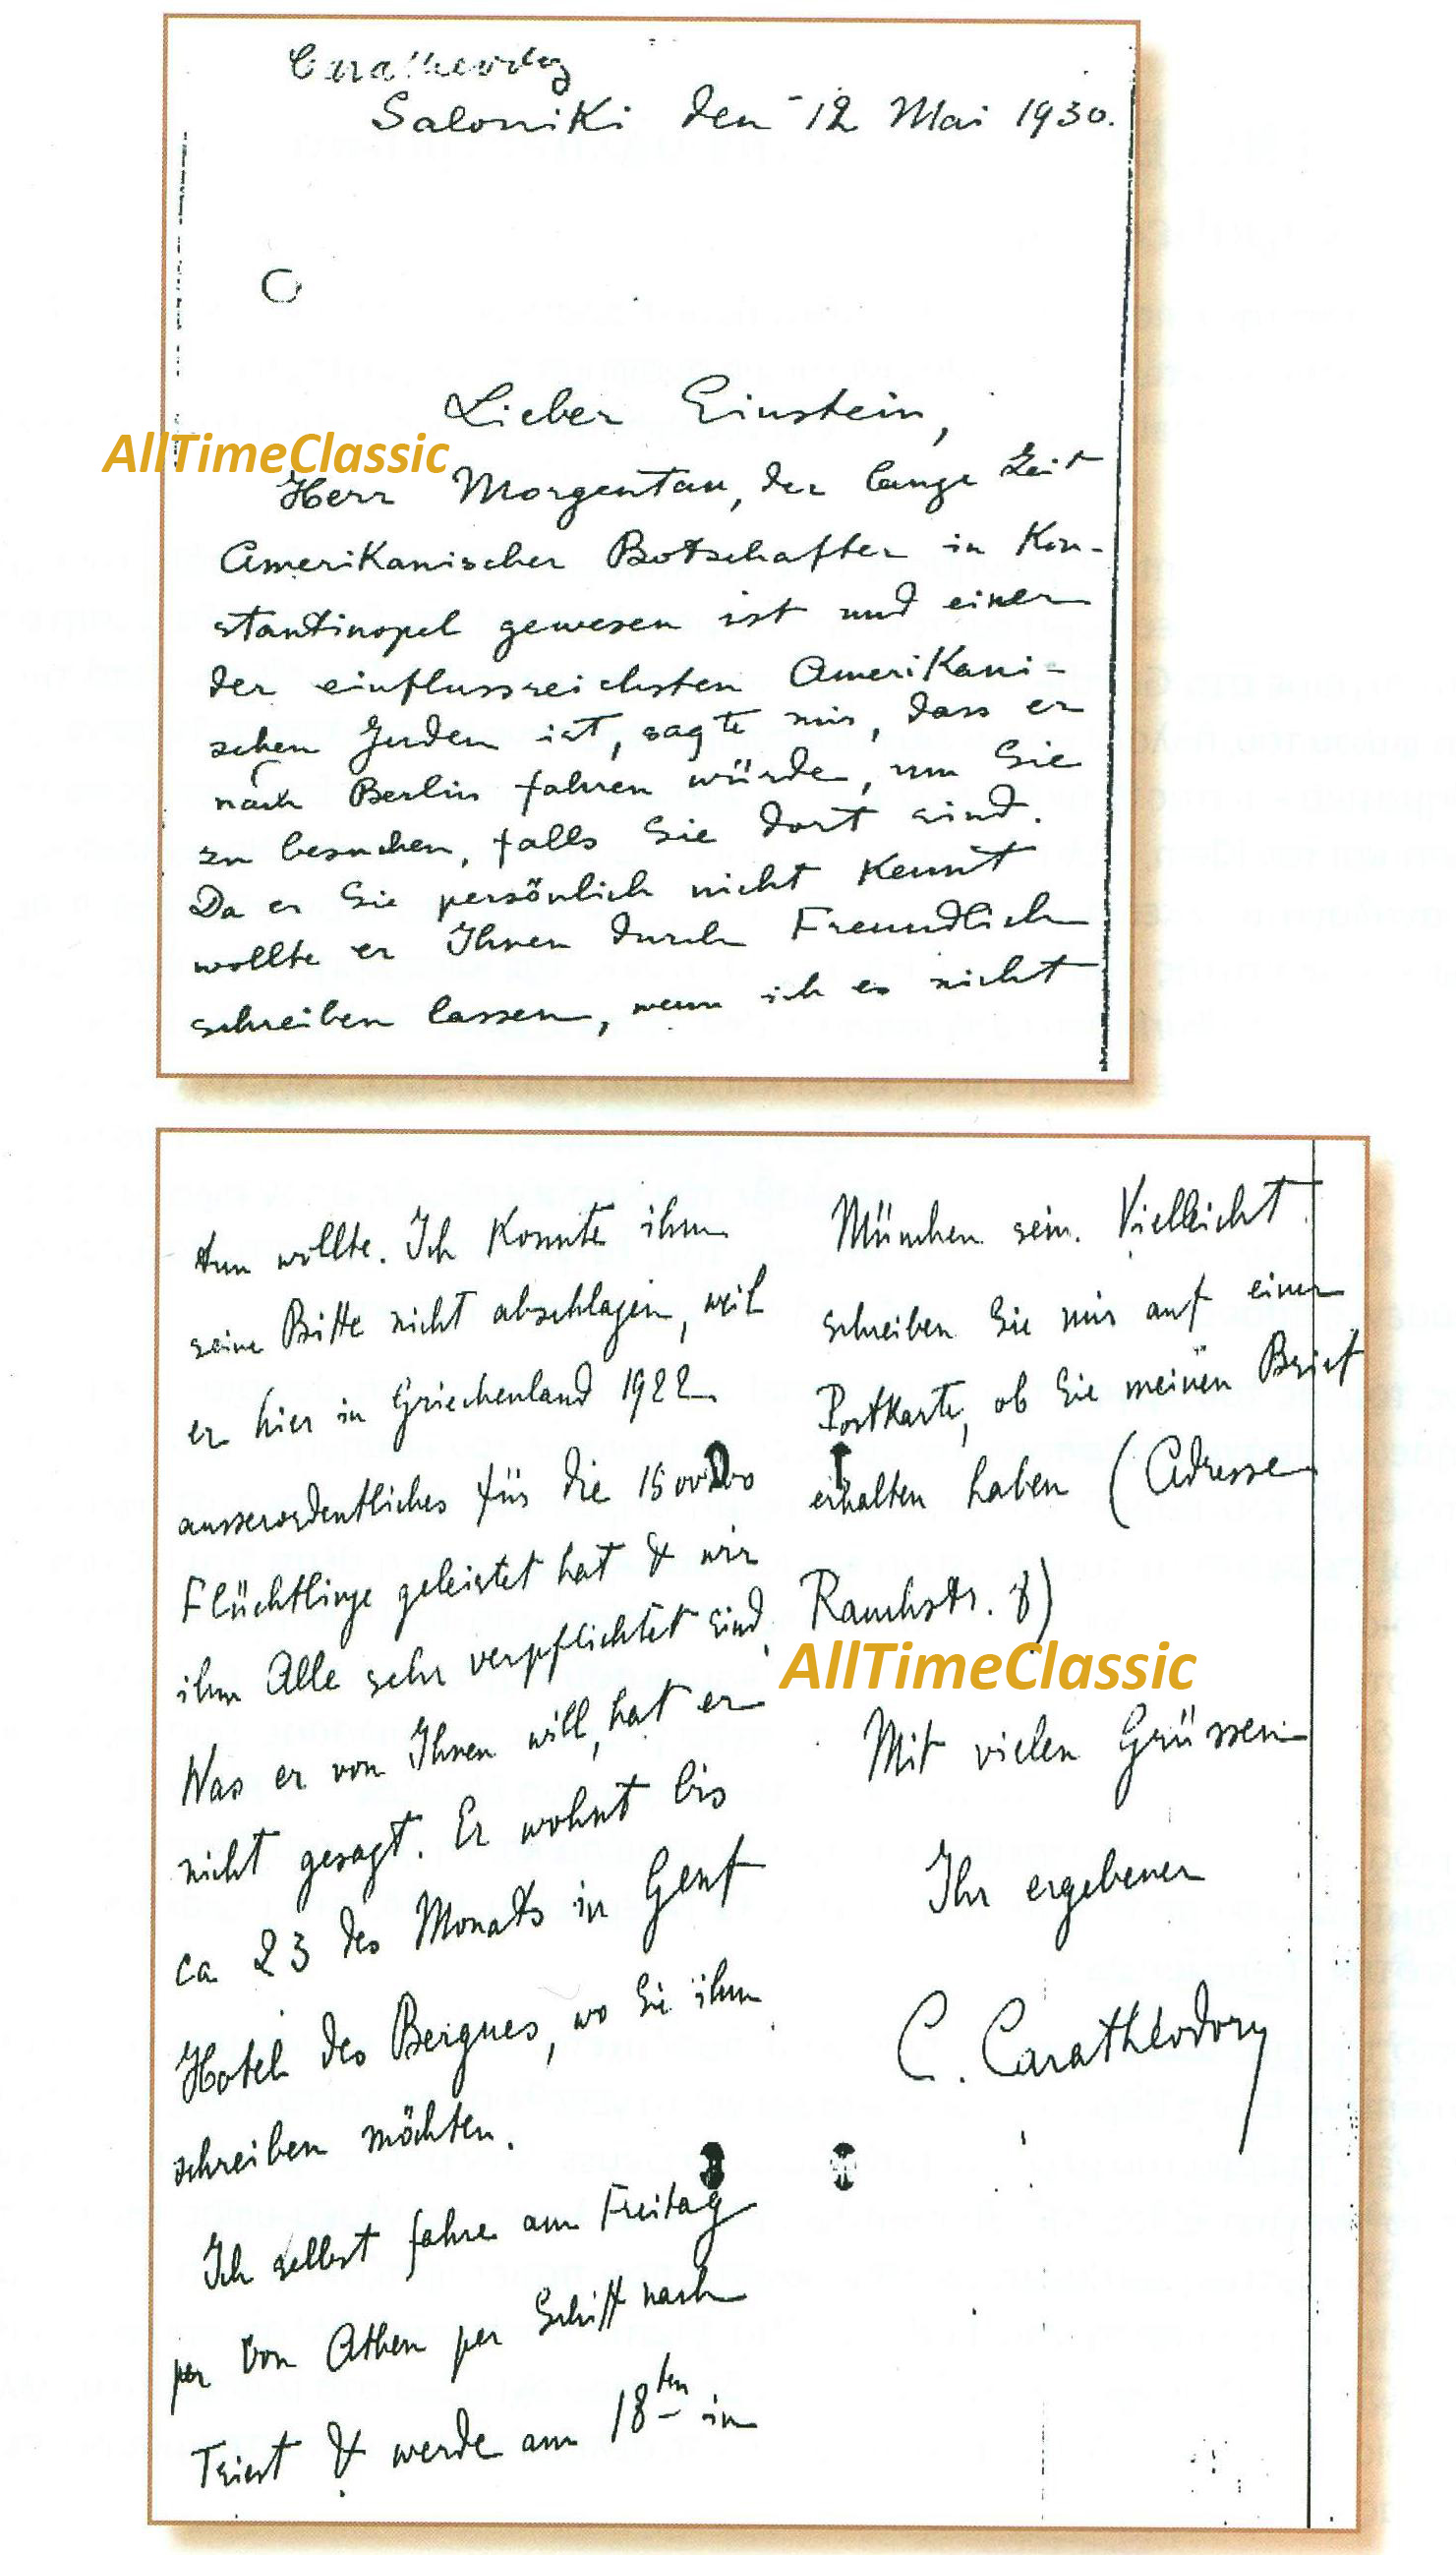 Caratheodory
Saloniki den 12 Mai 1930.
Lieber Einstein,
AllTimeClassic
Herr Morgentau, der lange Zeit
Amerikanischer Botschafter in Kon-
stantinopel gewesen ist und einer
der einflussreichsten Amerikani-
schen Juden ist, sagte mir, dass er
nach Berlin fahren würde, um Sie
zu besuchen, falls Sie dort sind.
Da er Sie persönlich nicht kennt
wollte er Ihnen durch Freundlich
schreiben lassen, wenn ich es nicht
tun wollte. Ich konnte ihm
seine Bitte nicht abschlagen, weil
er hier in Griechenland 1922
ausserordentliches für die 1500000
Flüchtlinge geleistet hat & wir
ihm Alle sehr verpflichtet sind.
Was er von Ihnen will, hat er
nicht gesagt. Er wohnt bis
ca 23 des Monats in Genf
Hotel des Bergues, wo Sie ihm
schreiben möchten.
Ich selbst fahre am Freitag
per von Athen per Schiff nach
Triest & werde am 18ten in
München sein. Vielleicht
schreiben Sie mir auf einer
Postkarte, ob Sie meinen Brief
erhalten haben (Adresse
Rauchstr. 8)
AllTimeClassic
Mit vielen Grüssen
Ihr ergebener
C. Carathéodory